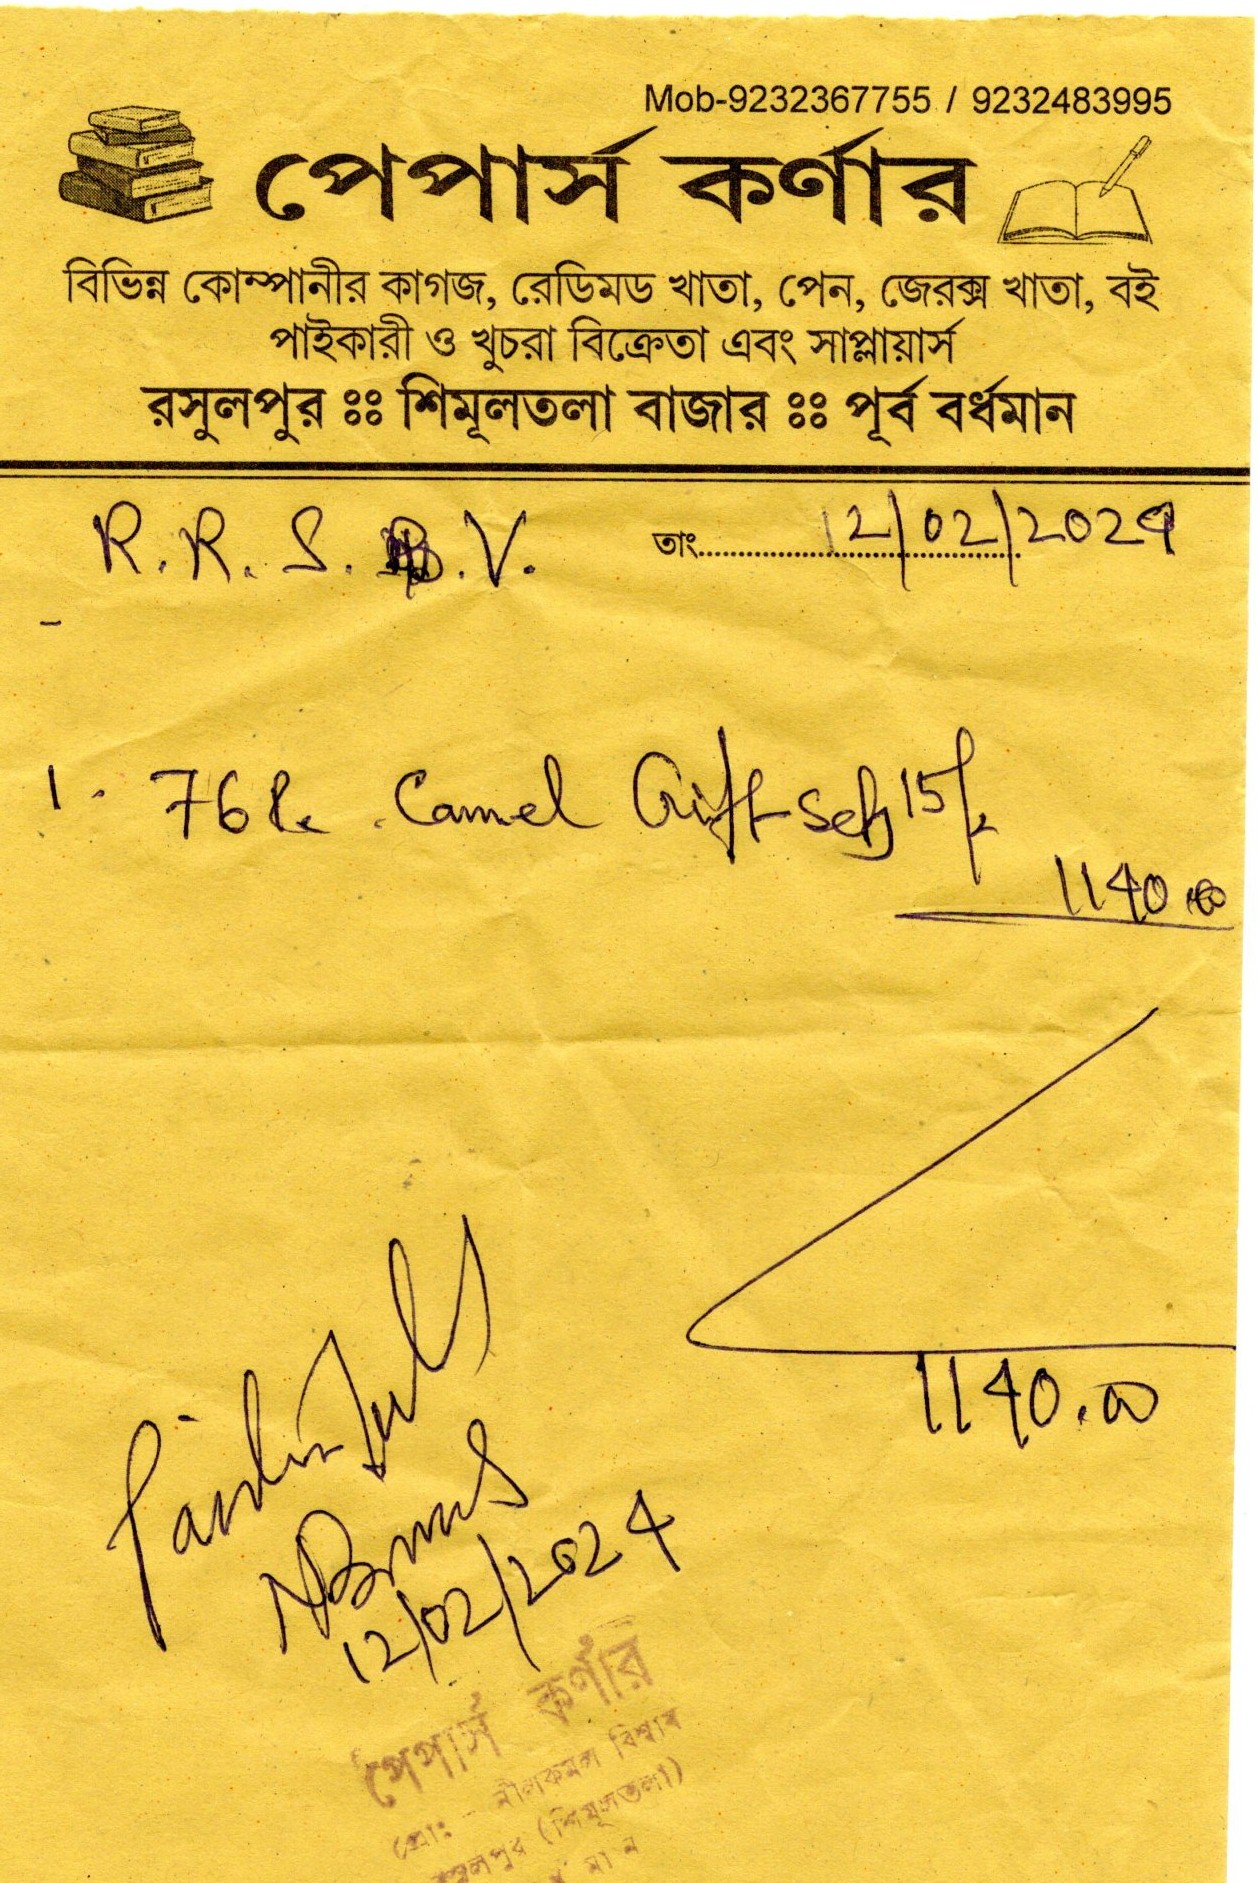 Mob-9232367755 / 9232483995
পেপার্স কর্ণার
বিভিন্ন কোম্পানীর কাগজ, রেডিমড খাতা, পেন, জেরক্স খাতা, বই
পাইকারী ও খুচরা বিক্রেতা এবং সাপ্লায়ার্স
রসুলপুর ঃঃ শিমূলতলা বাজার ঃঃ পূর্ব বর্ধমান
R. R. S. B. V. তাং 12/02/2024
1. 76 Camel Gift Sets 15/-
1140.00
1140.00
Paid in full
12/02/2024
পেপার্স কর্ণার
প্রোঃ - নীলকমল বিশ্বাস
রসুলপুর (শিমূলতলা)